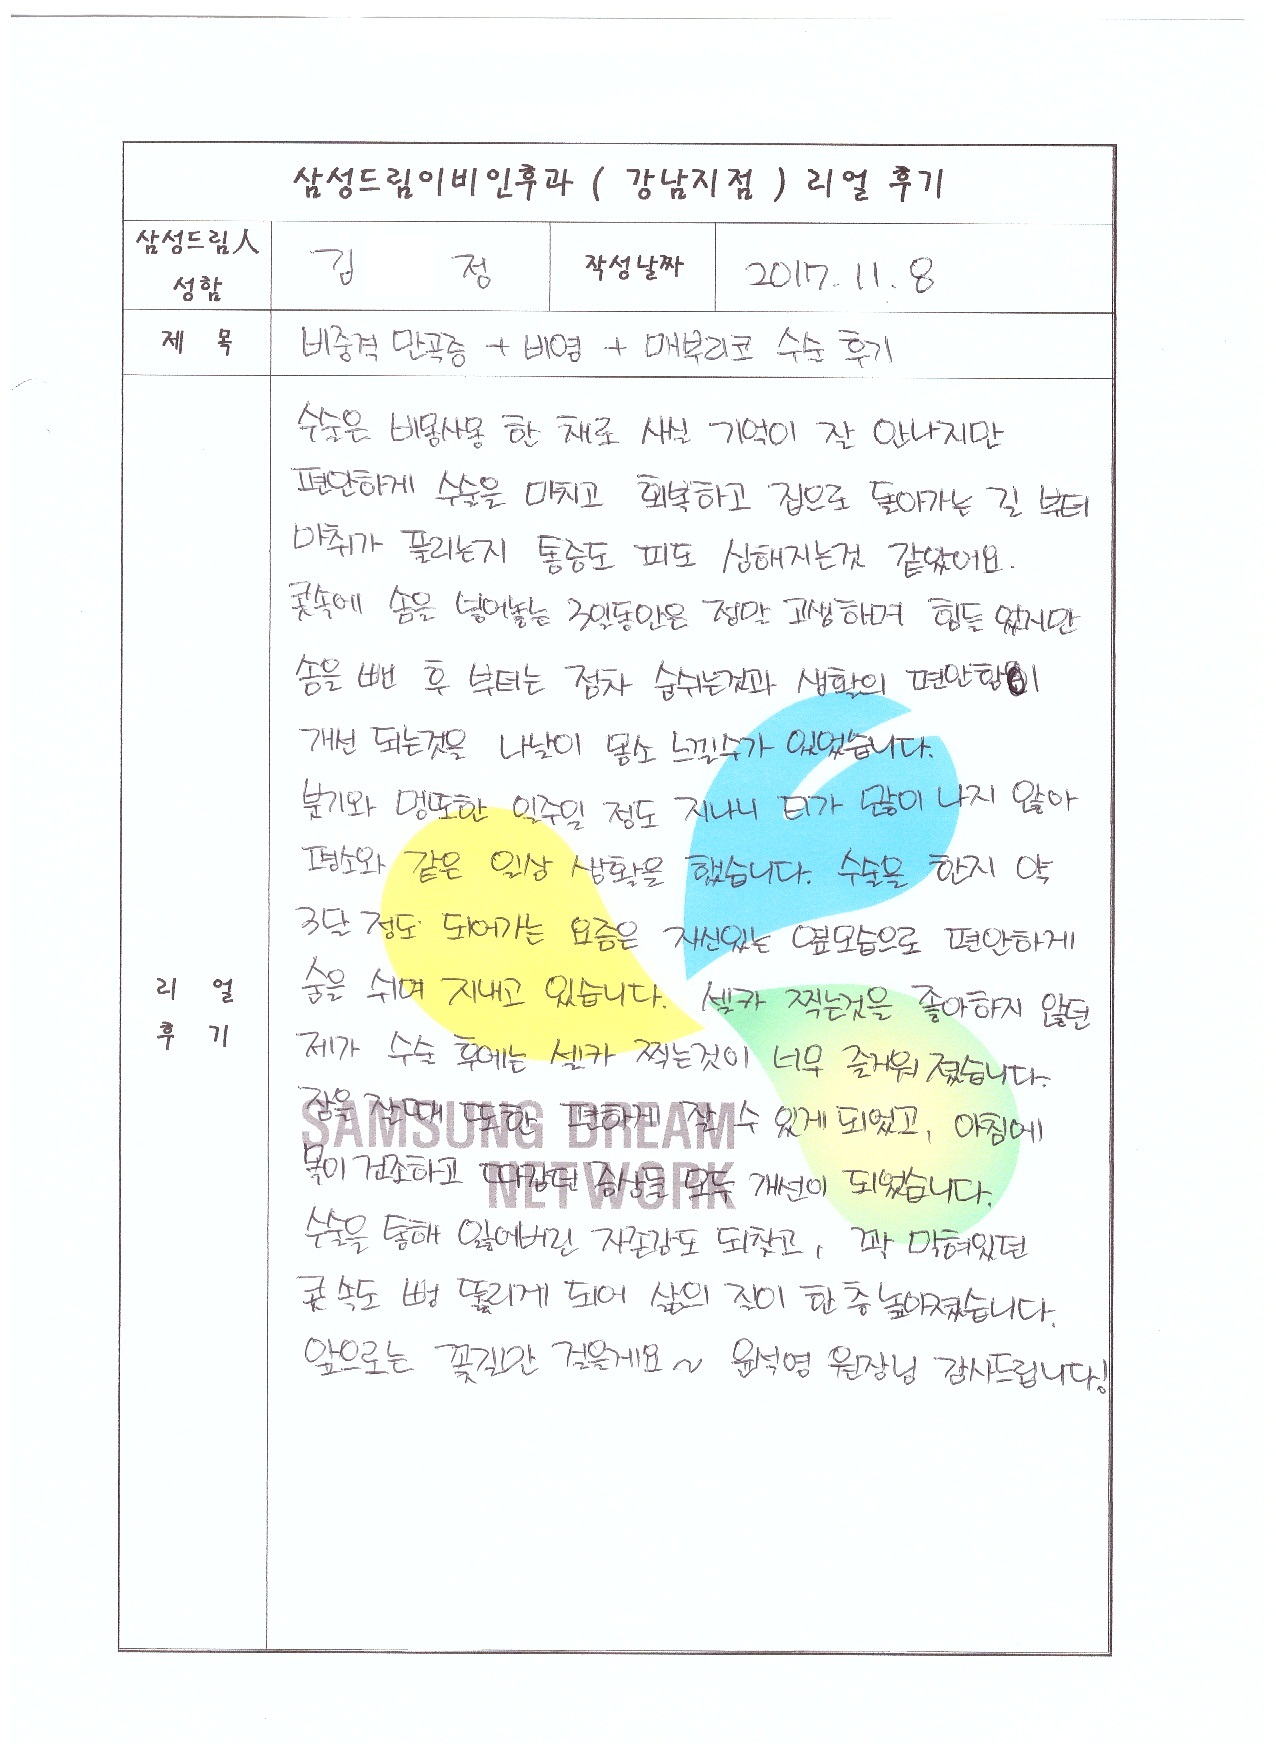 삼성드림이비인후과 ( 강남지점 ) 리얼 후기
삼성드림人
성함
김 정
작성날짜
2017. 11. 8
제 목
비중격 만곡증 + 비염 + 매부리코 수술 후기
리 얼
후 기
수술은 비몽사몽 한 채로 사실 기억이 잘 안나지만
편안하게 수술을 마치고 회복하고 집으로 돌아가는 길 부터
마취가 풀리는지 통증도 피도 심해지는것 같았어요.
콧속에 솜을 넣어놓는 3일동안은 정말 고생하며 힘들었지만
솜을 뺀 후 부터는 점차 숨쉬는것과 생활의 편안함이
개선 되는것을 나날이 몸소 느낄수가 있었습니다.
붓기와 멍또한 일주일 정도 지나니 티가 많이 나지 않아
평소와 같은 일상 생활을 했습니다. 수술을 한지 약
3달 정도 되어가는 요즘은 자신있는 옆모습으로 편안하게
숨을 쉬며 지내고 있습니다. 셀카 찍는것을 좋아하지 않던
제가 수술 후에는 셀카 찍는것이 너무 즐거워 졌습니다.
잠을 잘때 또한 편하게 잘 수 있게 되었고, 아침에
목이 건조하고 따갑던 증상들 모두 개선이 되었습니다.
수술을 통해 잃어버린 자존감도 되찾고, 꽉 막혀있던
콧 속도 뻥 뚫리게 되어 삶의 질이 한 층 높아졌습니다.
앞으로는 꽃길만 걸을게요~ 윤석영 원장님 감사드립니다!
SAMSUNG DREAM
NETWORK